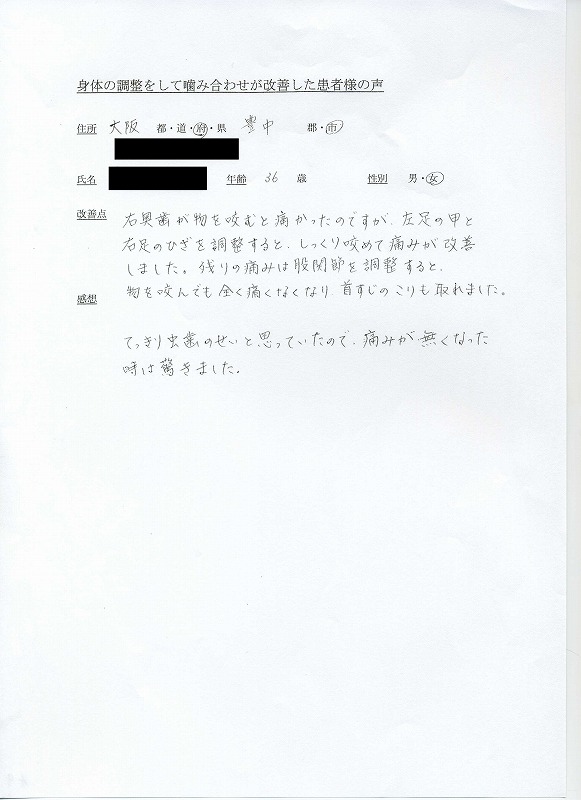 身体の調整をして噛み合わせが改善した患者様の声
住所 大阪 都・道・府・県 豊中 郡・市
氏名 年齢 36 歳 性別 男・女
改善点 右奥歯が物を咬むと痛かったのですが、左足の甲と
右足のひざを調整すると、しっくり咬めて痛みが改善
しました。残りの痛みは股関節を調整すると、
物を咬んでも全く痛くなくなり、首すじのこりも取れました。
感想
てっきり虫歯のせいと思っていたので、痛みが無くなった
時は驚きました。